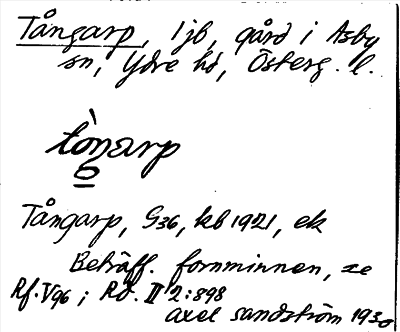 Tångarp, 1 jb, gård i Asby
sn, Ydre hd, Österg. l.
tòṉarp
Tångarp, G36, kb 1921, ek
Beträff. fornminnen, se
Rf. V96; Rd. II 2:898
Axel Sandström 1930